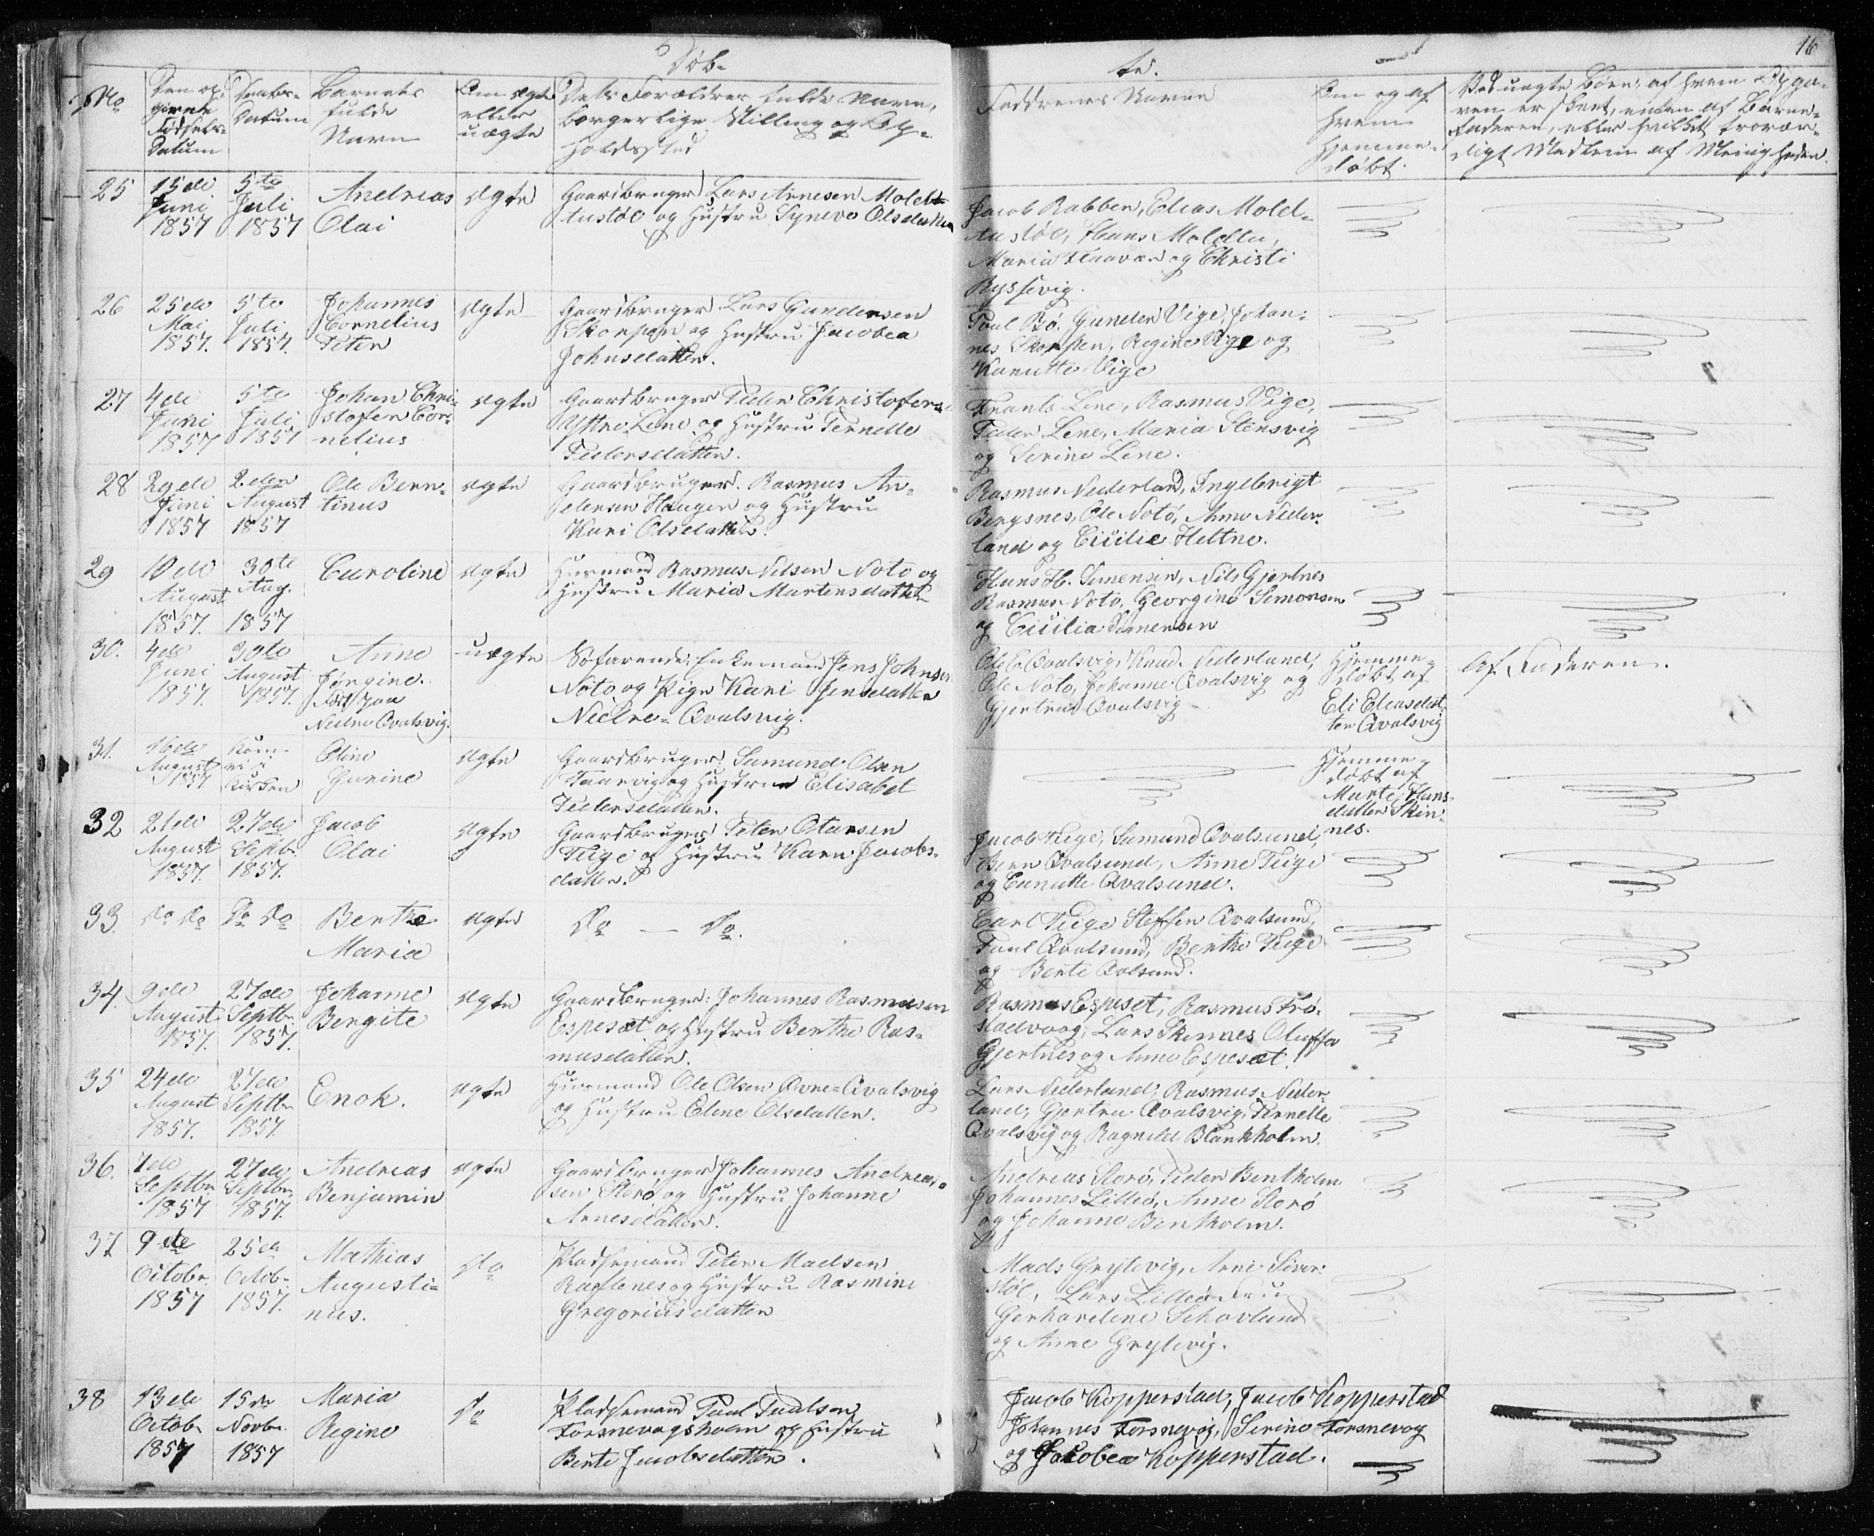 Døb-
te.
16
No
Den op-
givne
Fødsels-
Datum
Daabs-
Datum
Barnets
fulde
Navn
Om ægte
eller
uægte
Dets Forældres fulde Navne,
borgerlige Stilling og Op-
holdssted
Faddrenes Navne
Om og af
hvem
hjemme-
døbt.
Ved uægte Børn: af hvem Opga-
ven er skeet, enten af Barne-
faderen, eller hvilket trovær-
digt Medlem af Menigheden.
25
15de
Juni
1857
5te
Juli
1857
Andreas
Olai
ægte
Gaardbruger Lars Arnesen Moldtu-
støl og Hustru Syneve Olsdatter
Jacob Rabben, Elias Mold-
tustøl, Hans Moldtu,
Maria Flaavær og Christi
Rypsevig.
26
25de
Mai
1857.
5te
Juli
1857.
Johannes
Cornelius
Peter
ægte
Gaardbruger Lars Gundersen
Skorpen og Hustru Jacobea
Johnsdatter.
Poul Bø, Gunder Vige, Johan-
nes Skorpen, Regine Vige og
Kanutte Vige
27
4de
Juni
1857
5te
Juli
1857
Johan Chri-
stofer Cor-
nelius
ægte
Gaardbruger Peder Christofers
Yttre Lene og Hustru Pernelle
Pedersdatter.
Frants Lene, Rasmus Vige,
Peder Lene, Maria Stensvig
og Serine Lene.
28
29de
Juni
1857
2den
August
1857
Ole Bern-
tinus
ægte
Gaardbruger. Rasmus An-
dersen Haugen og Hustru
Kari Olsdatter.
Rasmus Nederland, Ingebrigt
Bergsnes, Ole Notø, Anne Neder-
land og Cicilie Heltne.
29
10de
August
1857.
30te
Aug.
1857
Caroline
ægte
Huusmand Rasmus Nilsen Notø og
Hustru Maria Martensdatter
Hans H. Simensen, Nils Gjertnes
Rasmus Notø, Georgine Simonsen
og Cicilia Simensen
30.
4de
Juni
1857.
30te
August
1857.
Anne
Jørgine.
Født paa
Nedre Qvalsvig.
uægte
Søfarende: Enkemand Jens Johnsen
Notø og Pige Kari Jensdatter
Nedre-Qvalsvig.
Ole C. Qvalsvig, Knud Nederland,
Ole Notø, Johanne Qvalsvig og
Gjertrud Qvalsvig
Hjemme-
døbt af
Eli Eliasdat-
ter Qvalsvig
Af Faderen.
31.
16de
August
1857
Kom
ei i
Kirken
Oline
Gurine
ægte
Gaardbruger Samund Olsen
Taarvig og Hustru Elisabet
Pedersdatter.
Hjemme-
døbt af
Marte Hans-
datter Skin-
nes.
32
21de
August
1857.
27de
Septbr.
1857.
Jacob
Olai
ægte
Gaardbruger Peter Olausen
Teige og Hustru Karn Jacobs-
datter.
Jacob Teige, Samund Qvalsund,
Bern Qvalsund, Anne Teige
og Canutte Qvalsund.
33.
Do Do
Do Do
Berthe
Maria
ægte
Do — Do.
Carl Teige Steffen Qvalsund,
Paul Qvalsund, Berthe Teige
og Berte Qvalsund.
34.
9de
August
1857.
27de
Septbr.
1857.
Johanne
Bergite
ægte
Gaardbruger: Johannes Rasmussen
Espeset og Hustru Berthe Ras-
musdatter.
Rasmus Espeset, Rasmus Frø-
stadvaag, Lars Skinnes Oluffa
Gjertnes og Anne Espeset.
35
24de
August
1857.
27de
Septbr
1857.
Enok.
ægte
Huusmand Ole Olsen Øvre-Qvalsvig
og Hustru Elene Olsdatter.
Lars Nederland, Rasmus Neder-
land, Gjertru Qvalsvig, Pernelle
Qvalsvig og Ragnild Blankholm.
36.
7de
Septbr
1857
27de
Septbr.
1857.
Andreas
Benjamin
ægte
Gaardbruger Johannes Andrea-
sen Storø og Hustru Johanne
Arnesdatter.
Andreas Storø, Peder Bentholm
Johannes Lilleø, Anne Storø
og Johanne Bentholm.
37
9de
Octobr.
1857
25de
Octob.
1857.
Mathias
Augusti-
nus.
do
Pladsemand Peter Madsen
Ragbnes og Hustru Rasmine
Gregoriusdatter
Mads Grytevig, Arne Siver-
støl, Lars Lilleø Fru
Gerhardine Schavland
og Anne Grytevig.
38
13de
Octob.
1857
15de
Novbr.
1857
Maria
Regine
do
Pladsemand Paul Paulsen
Torsnevagsholm og Hustru
Berte Jacobsdatter.
Jacob Kopperstad, Jacob Kopperstad
Johannes Torsnevog, Serine Torsnevog
og Jakobea Kopperstad.